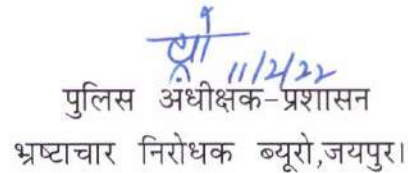 11/2/22
पुलिस अधीक्षक-प्रशासन
भ्रष्टाचार निरोधक ब्यूरो,जयपुर।